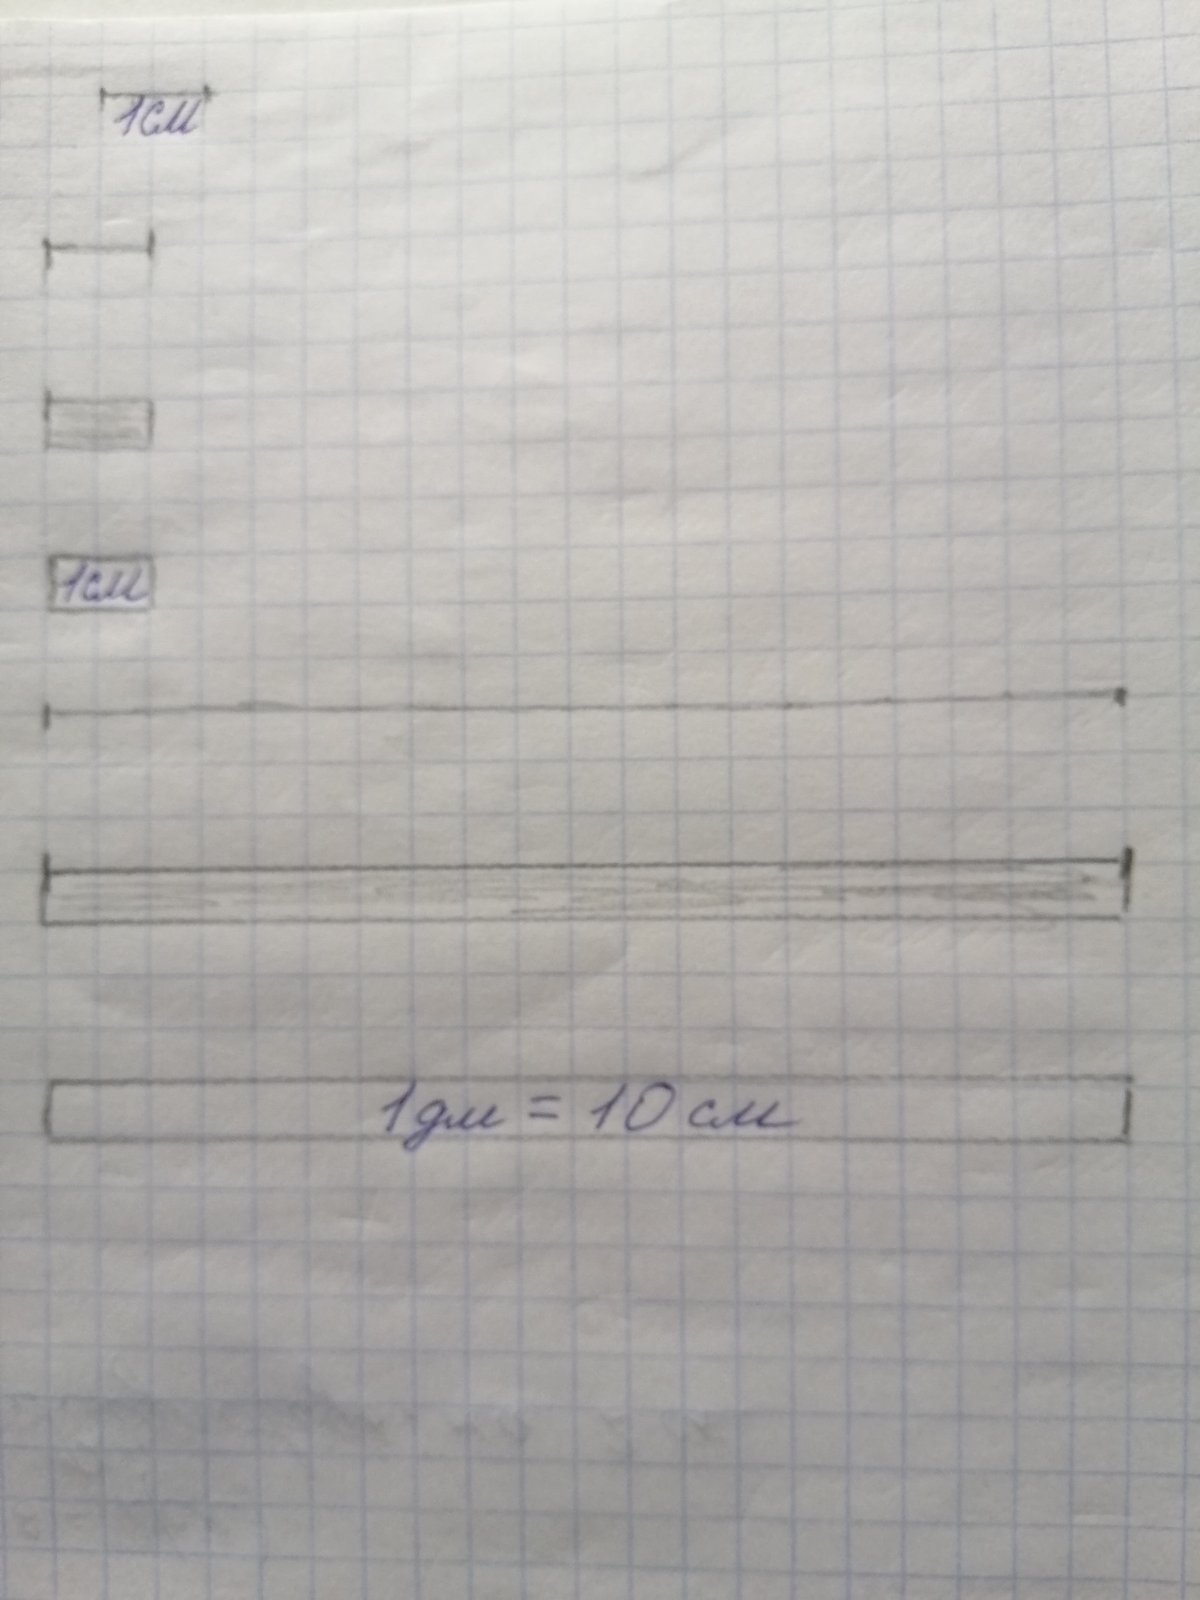 1см
1см
1дм = 10 см